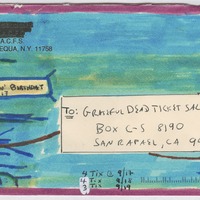 A.C.F.S.
EQUA, N.Y. 11758
N' BIRTHDAY
TO: GRATEFUL DEAD TICKET SAL
BOX C-S 8190
SAN RAFAEL, CA 9
4 TIX @ 9/17
4 TIX 9/18
3 TIX 9/19